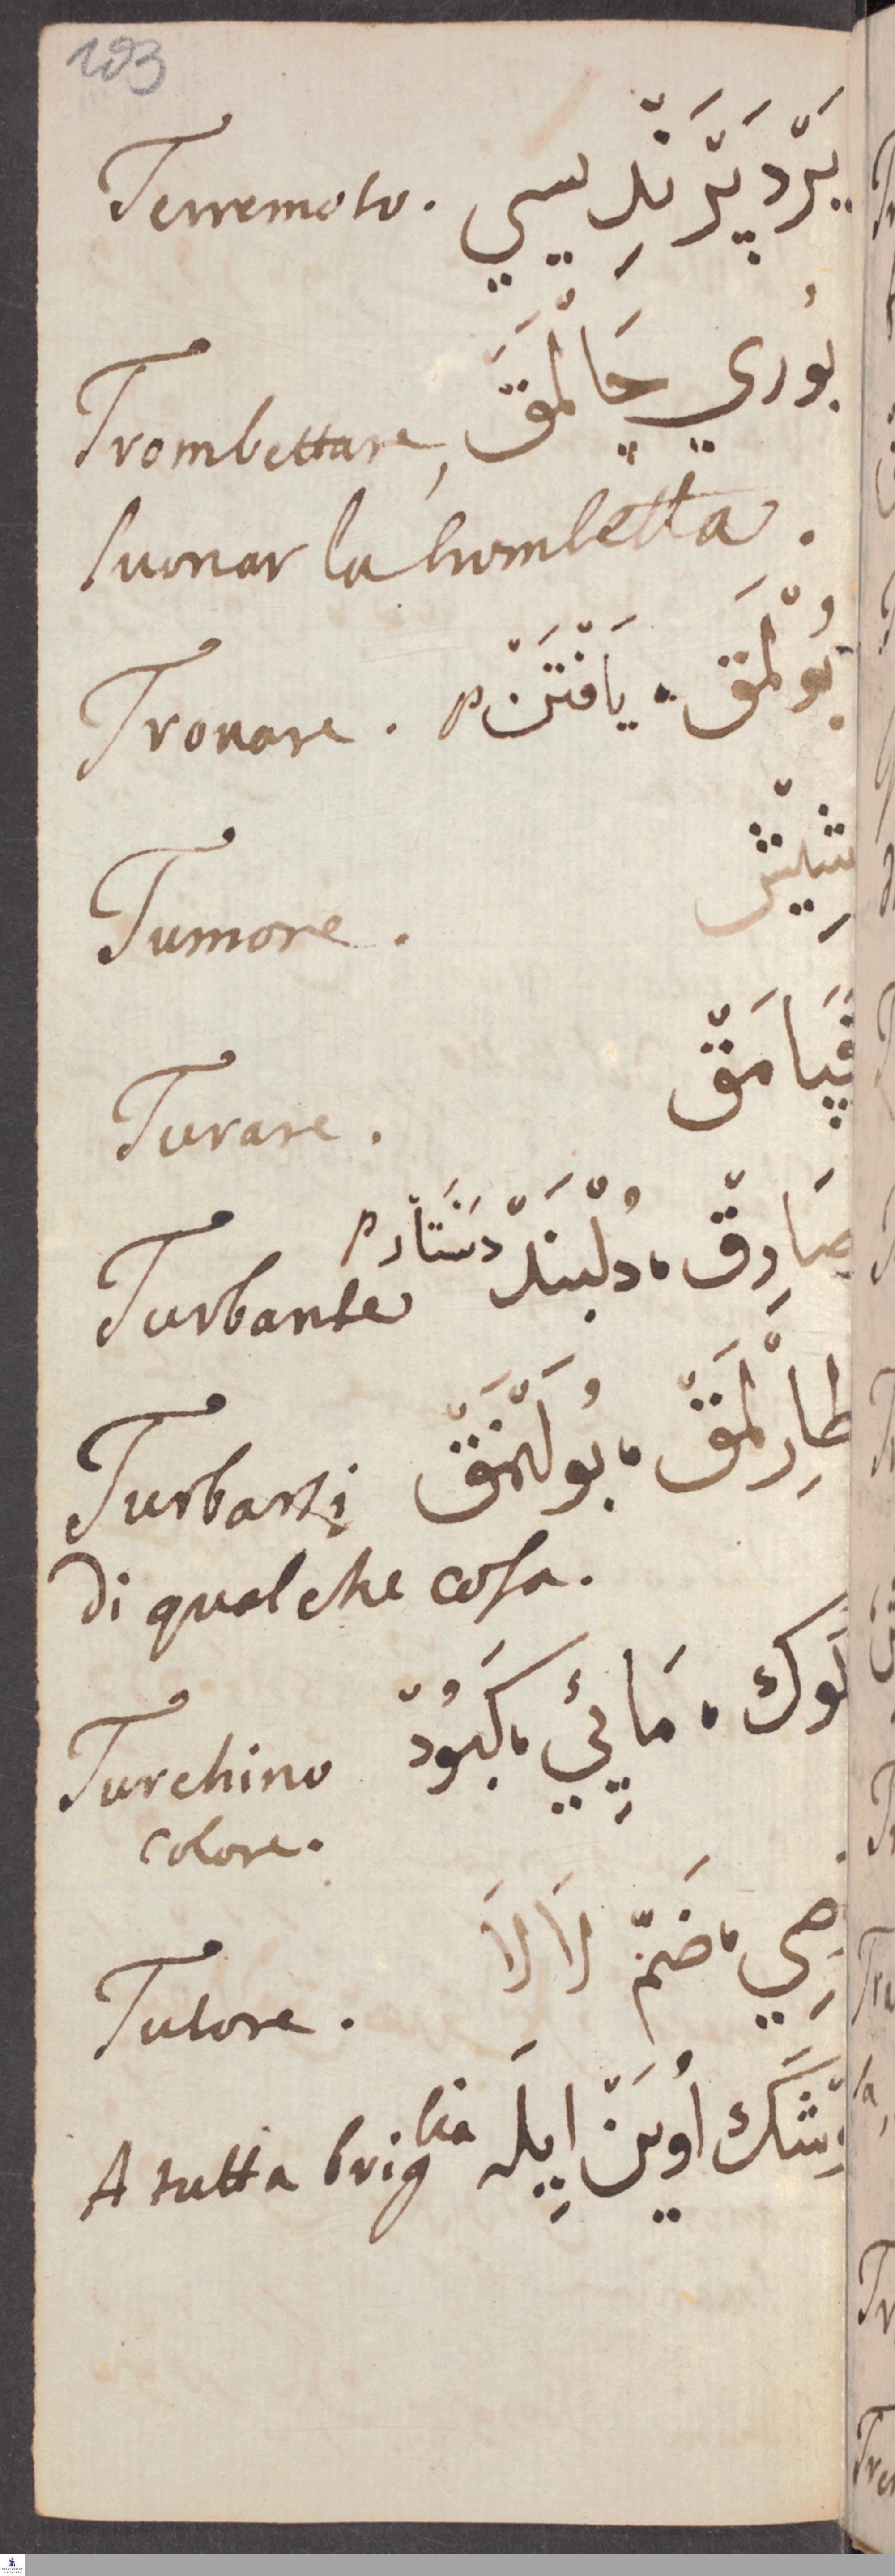 103
Terremoto. يَرْدَپْرَنْدِيسِي
Trombettare, بُورِي چَالْمَقَ
suonar la trombetta.
Trovare. بُولْمَقْ، يَافْتَنْ p
Tumore. شِيشْ
Turare. قَپَامَقْ
Turbante صَارِقْ، دُلْبَنَدْ دَسْتَارْ p
Turbarsi طَارِلْمَقْ، بُولَنْمَقْ
di qualche cosa.
Turchino كَوك، مَائِي، كَبُودْ
colore.
Tutore. وَصِي، لَالَا
A tutta briglia أُويَنْ اِيلَه